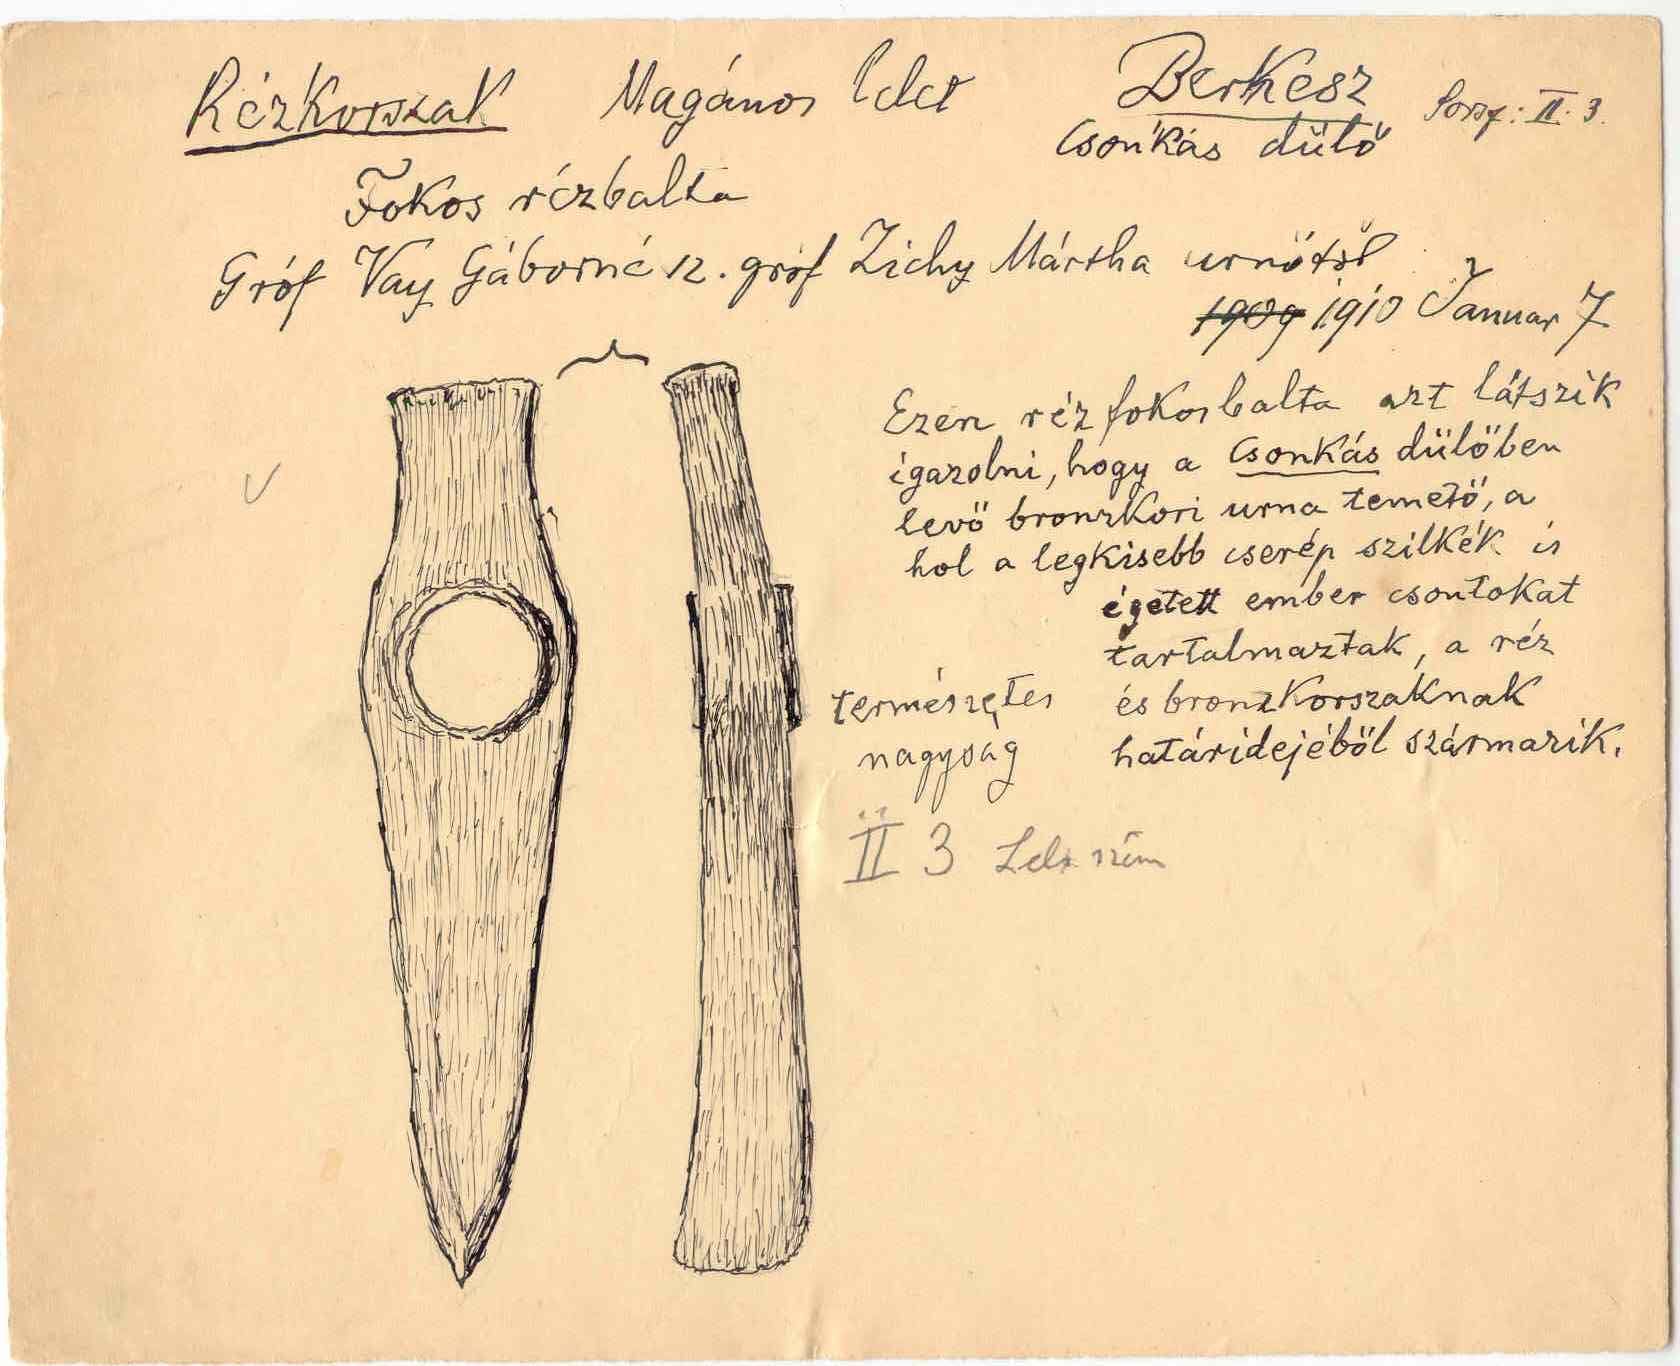 Rézkorszak Magános lelet Berkesz Sorsz: II. 3.
Csonkás dülő
Fokos rézbalta
Gróf Vay Gáborné sz. gróf Zichy Mártha urnőtől
1909 1910 Januar 7
Ezen réz fokosbalta azt látszik
igazolni, hogy a Csonkás dülőben
levő bronzkori urna temető, a
hol a legkisebb cserép szilkék is
égetett ember csontokat
tartalmaztak, a réz
és bronzkorszaknak
határidejéből származik.
természetes
nagyság
II 3 Lelt szám